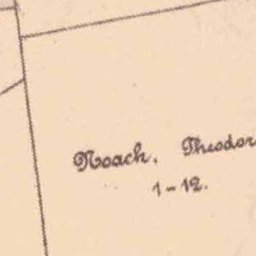 Noack, Theodor
1-12.